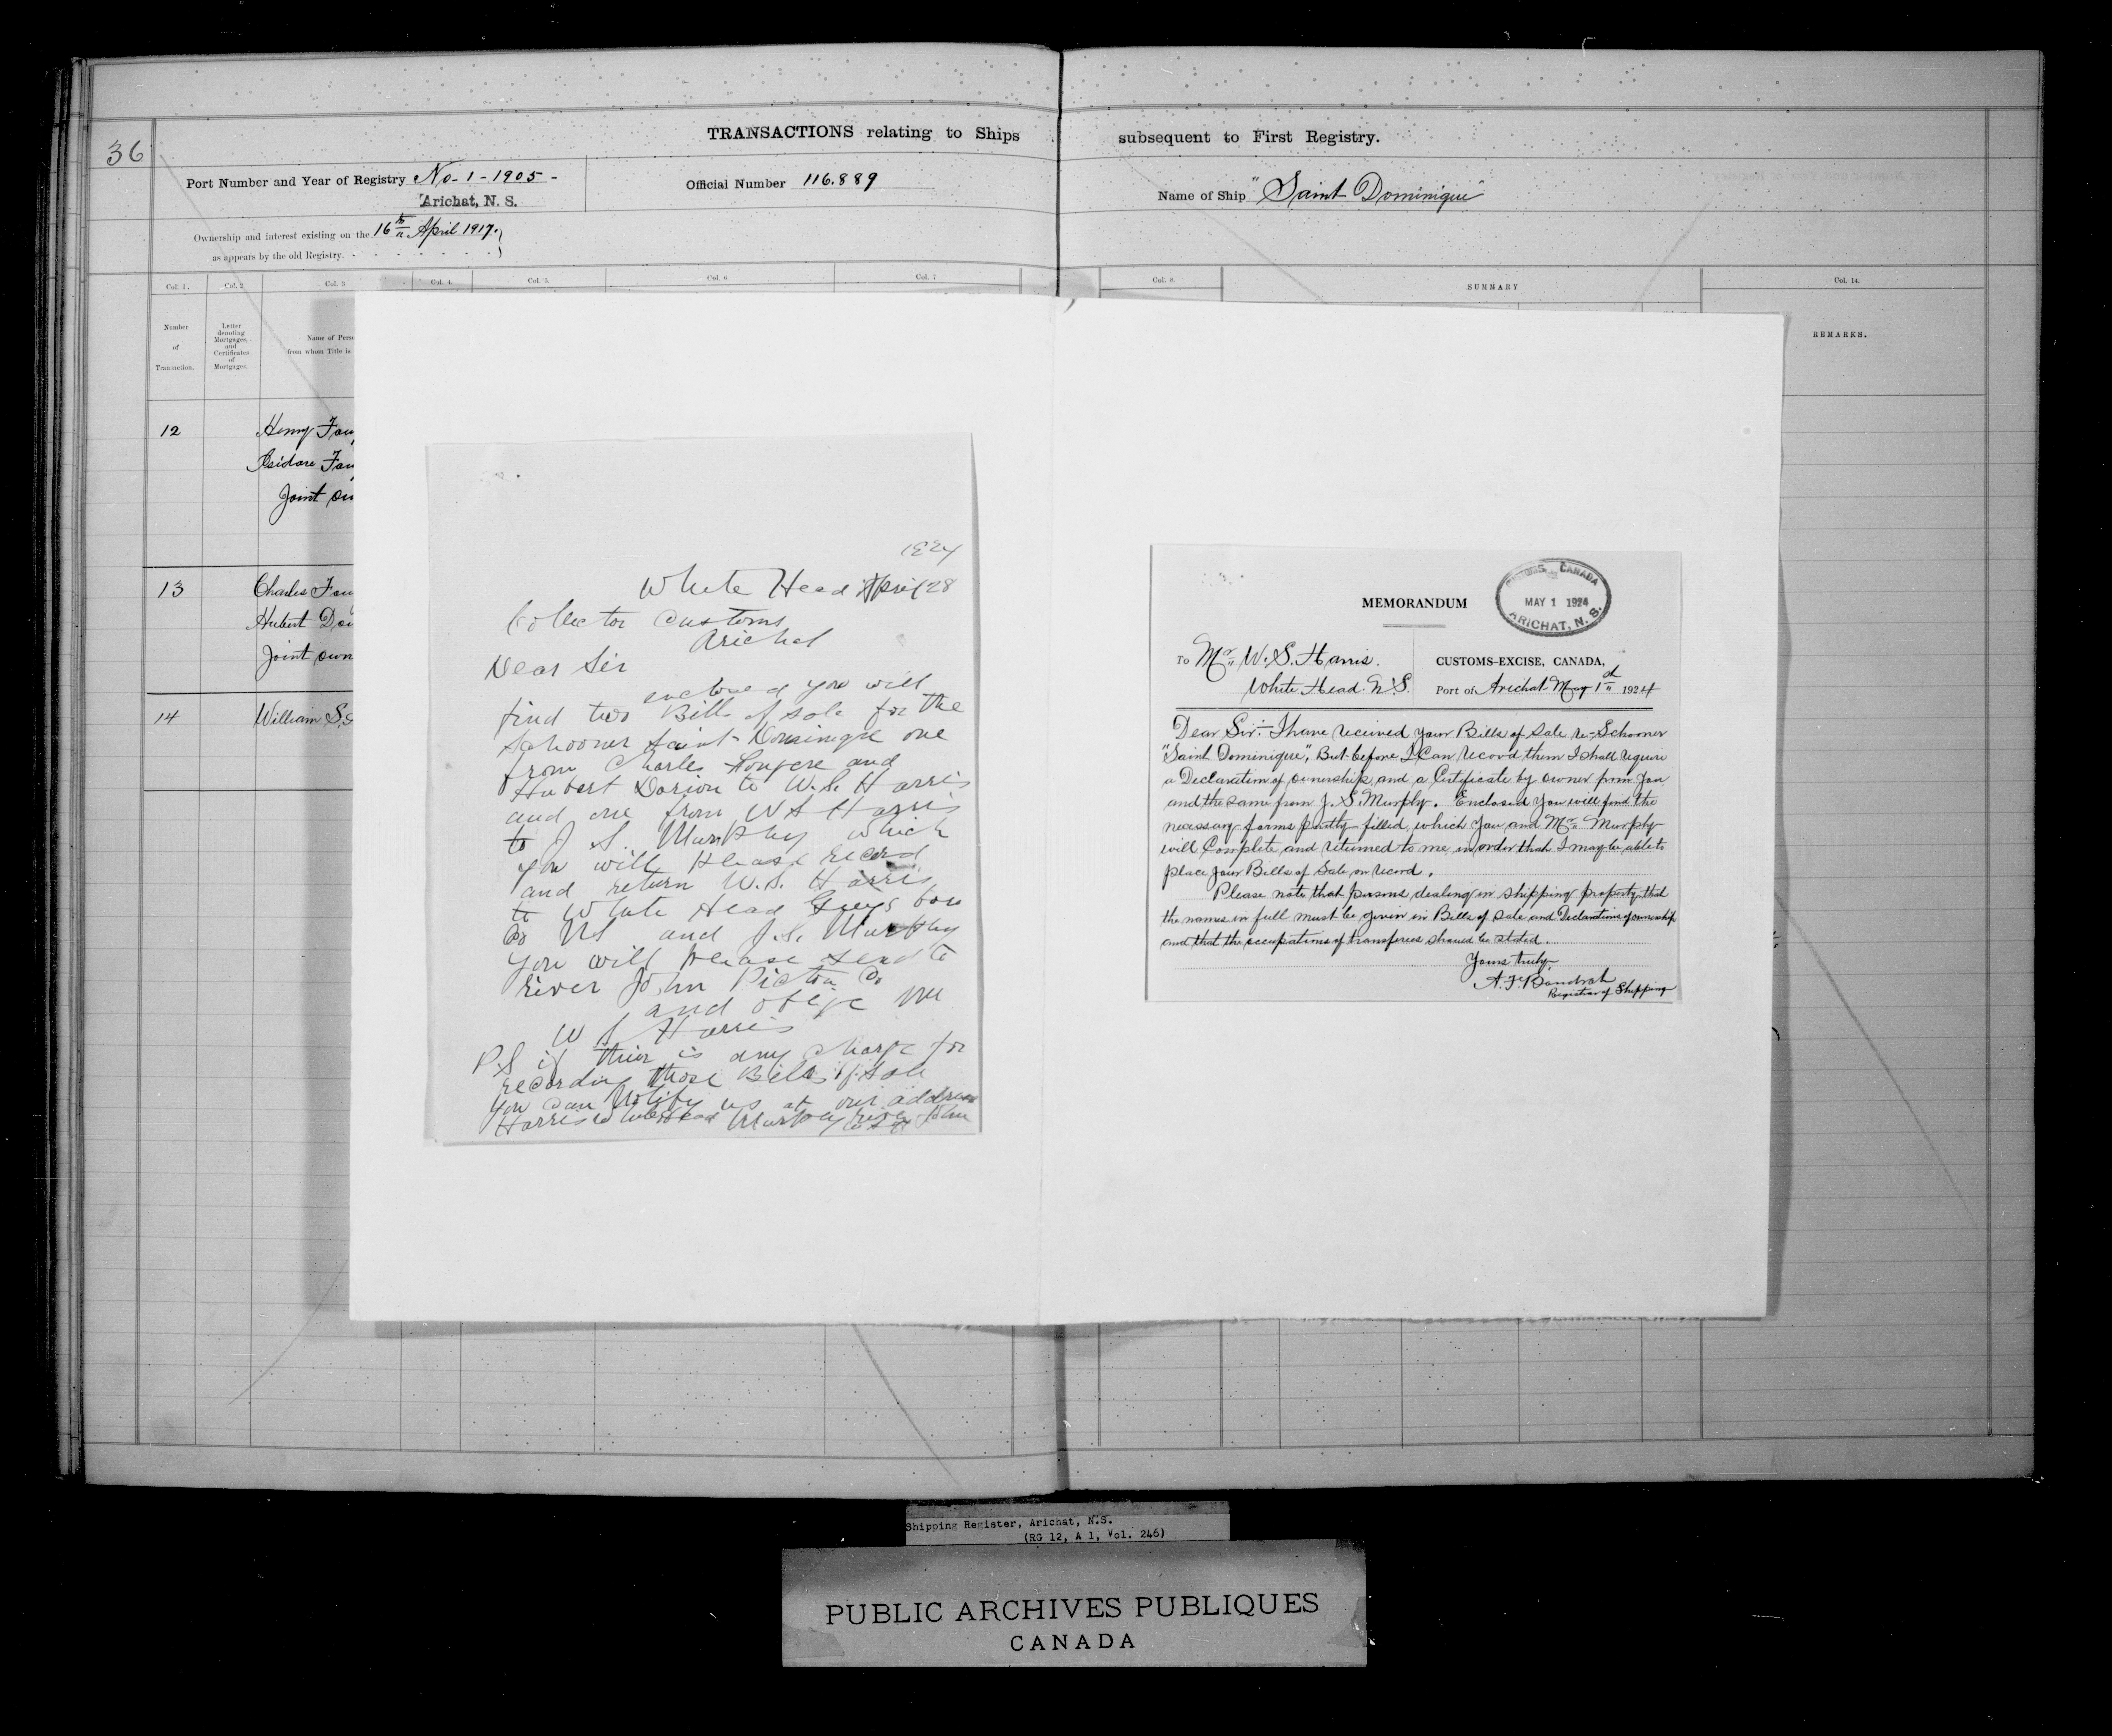 36
TRANSACTIONS relating to Ships subsequent to First Registry.
Port Number and Year of Registry No. 1 - 1905 -
Arichat, N. S.
Official Number 116.889
Name of Ship "Saint Dominique"
Ownership and interest existing on the 16th April 1917.
as appears by the old Registry.
Col. 1. Col. 2 Col. 3 Col. 4. Col. 5. Col. 6 Col. 7 Col. 8. SUMMARY Col. 14.
Number of Transaction.
Letter denoting Mortgages, and Certificates of Mortgages.
Name of Pers
from whom Title is
REMARKS.
12 Henry Fou
Isidore Fou
Joint ow
13 Charles Fou
Hubert Do
Joint own
14 William S.
1924
White Head April 28
Collector Customs
Arichat
Dear Sir
enclosed you will
find two Bills of Sale for the
Schooner Saint Dominique one
from Charles Fougere and
Hubert Dorion to W. S. Harris
and one from W S Harris
to J. S. Murphy which
you will please record
and return W. S. Harris
to White Head Guys boro
Co NS and J. S. Murphy
you will please send to
River John Pictou Co
and oblige me
W S Harris
P.S if thier is any charge for
recording those Bills of Sale
you can Notify us at our address
Harris to White Head Murphy River John
MEMORANDUM
CUSTOMS, CANADA
MAY 1 1924
ARICHAT, N. S.
To Mr. W. S. Harris.
White Head. N.S.
CUSTOMS-EXCISE, CANADA,
Port of Arichat May 1st 1924
Dear Sir:- I have received your Bills of Sale re-Schooner
"Saint Dominique", But before I Can record them I shall require
a Declaration of ownership and a Certificate by owner from you
and the same from J. S. Murphy. Enclosed you will find the
necessary forms partly filled, which you and Mr. Murphy
will Complete and returned to me in order that I may be able to
place your Bills of Sale on record.
Please note that persons dealing in shipping property that
the names in full must be given in Bills of Sale and Declarations of ownership
and that the occupations of transferees should be stated.
Yours truly,
A. F. Boudrot
Registrar of Shipping
Shipping Register, Arichat, N.S.
(RG 12, A 1, Vol. 246)
PUBLIC ARCHIVES PUBLIQUES
CANADA